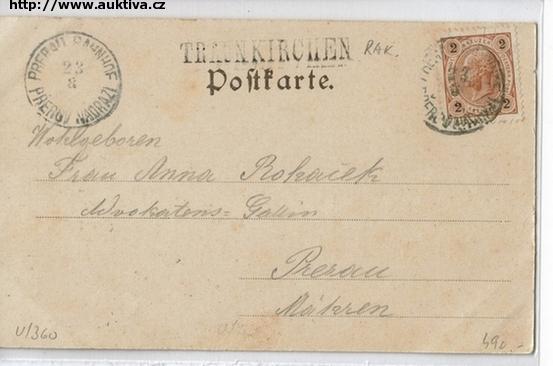 http://www.auktiva.cz
PRERAU BAHNHOF
23
8
PŘEROV NÁDRAŽÍ
TRAUNKIRCHEN
RAK.
Postkarte.
2 2
2 2
Wohlgeboren
Frau Anna Rohaček
Advokatens= Gattin
Prerau
Mähren
V/360
490.-